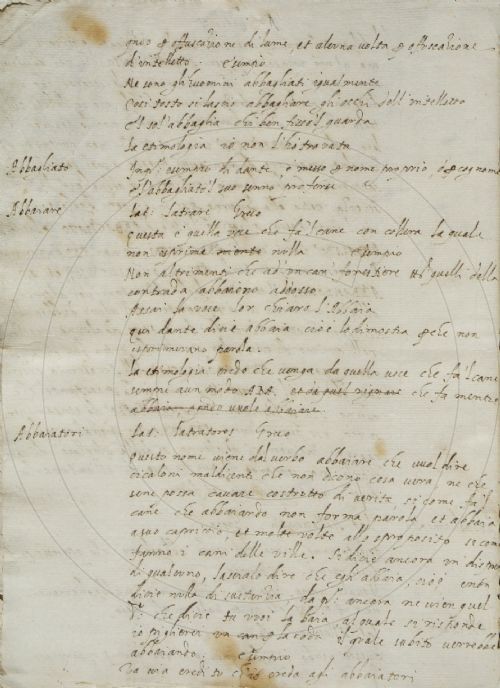 preso per offuscatione di lume, et alcuna volta per offuscatione
d'intelletto. esempio
Ne sono gli huomini abbagliati egualmente
Così tosto si lasciò abbagliare gli occhi dell'intelletto
E'l sol abbaglia chi ben fisso'l guarda
la etimologia io non l'ho trovata
Abbagliato In quel esempio di dante, è messo per nome proprio, o per cognome
e l'abbagliato'l suo senno proferse
Abbaiare lat: latrare Greco
questa è quella voce che fa'l cane con collera la quale
non esprime niente nulla esempio
Non altrimenti che ad un can forestiere quelli della
contrada abbaiano addosso
Assai la voce lor chiaro l'abbaia
qui dante dice abbaia cioè lo dimostra perche non
esprimevano parola.
la etimologia credo che venga da quella voce che fa'l cane
sempre a un modo che fa mentre
abbaia
Abbaiatori Lat: latratores Greco
questo nome viene dal verbo abbaiare che vuol dire
cicaloni maldicenti che non dicono cosa vera ne che
sene possa cavare costretto di verità, si come fa'l
cane che abbaiando non forma parola et abbaia
a suo capriccio, et molte volte allo sproposito si come
fanno i cani delle ville. Si dice ancora in
di qualcuno, lascialo dire che egli abbaia, cioè
dice nulla di sustanzia, da qui ancora ne vien quel
che dice tu vuoi la baia, al quale si risponde
io piglierei la coda il quale subito verrebbe
abbaiando: esempio
Va via credi tu ch'io creda agli abbaiatori